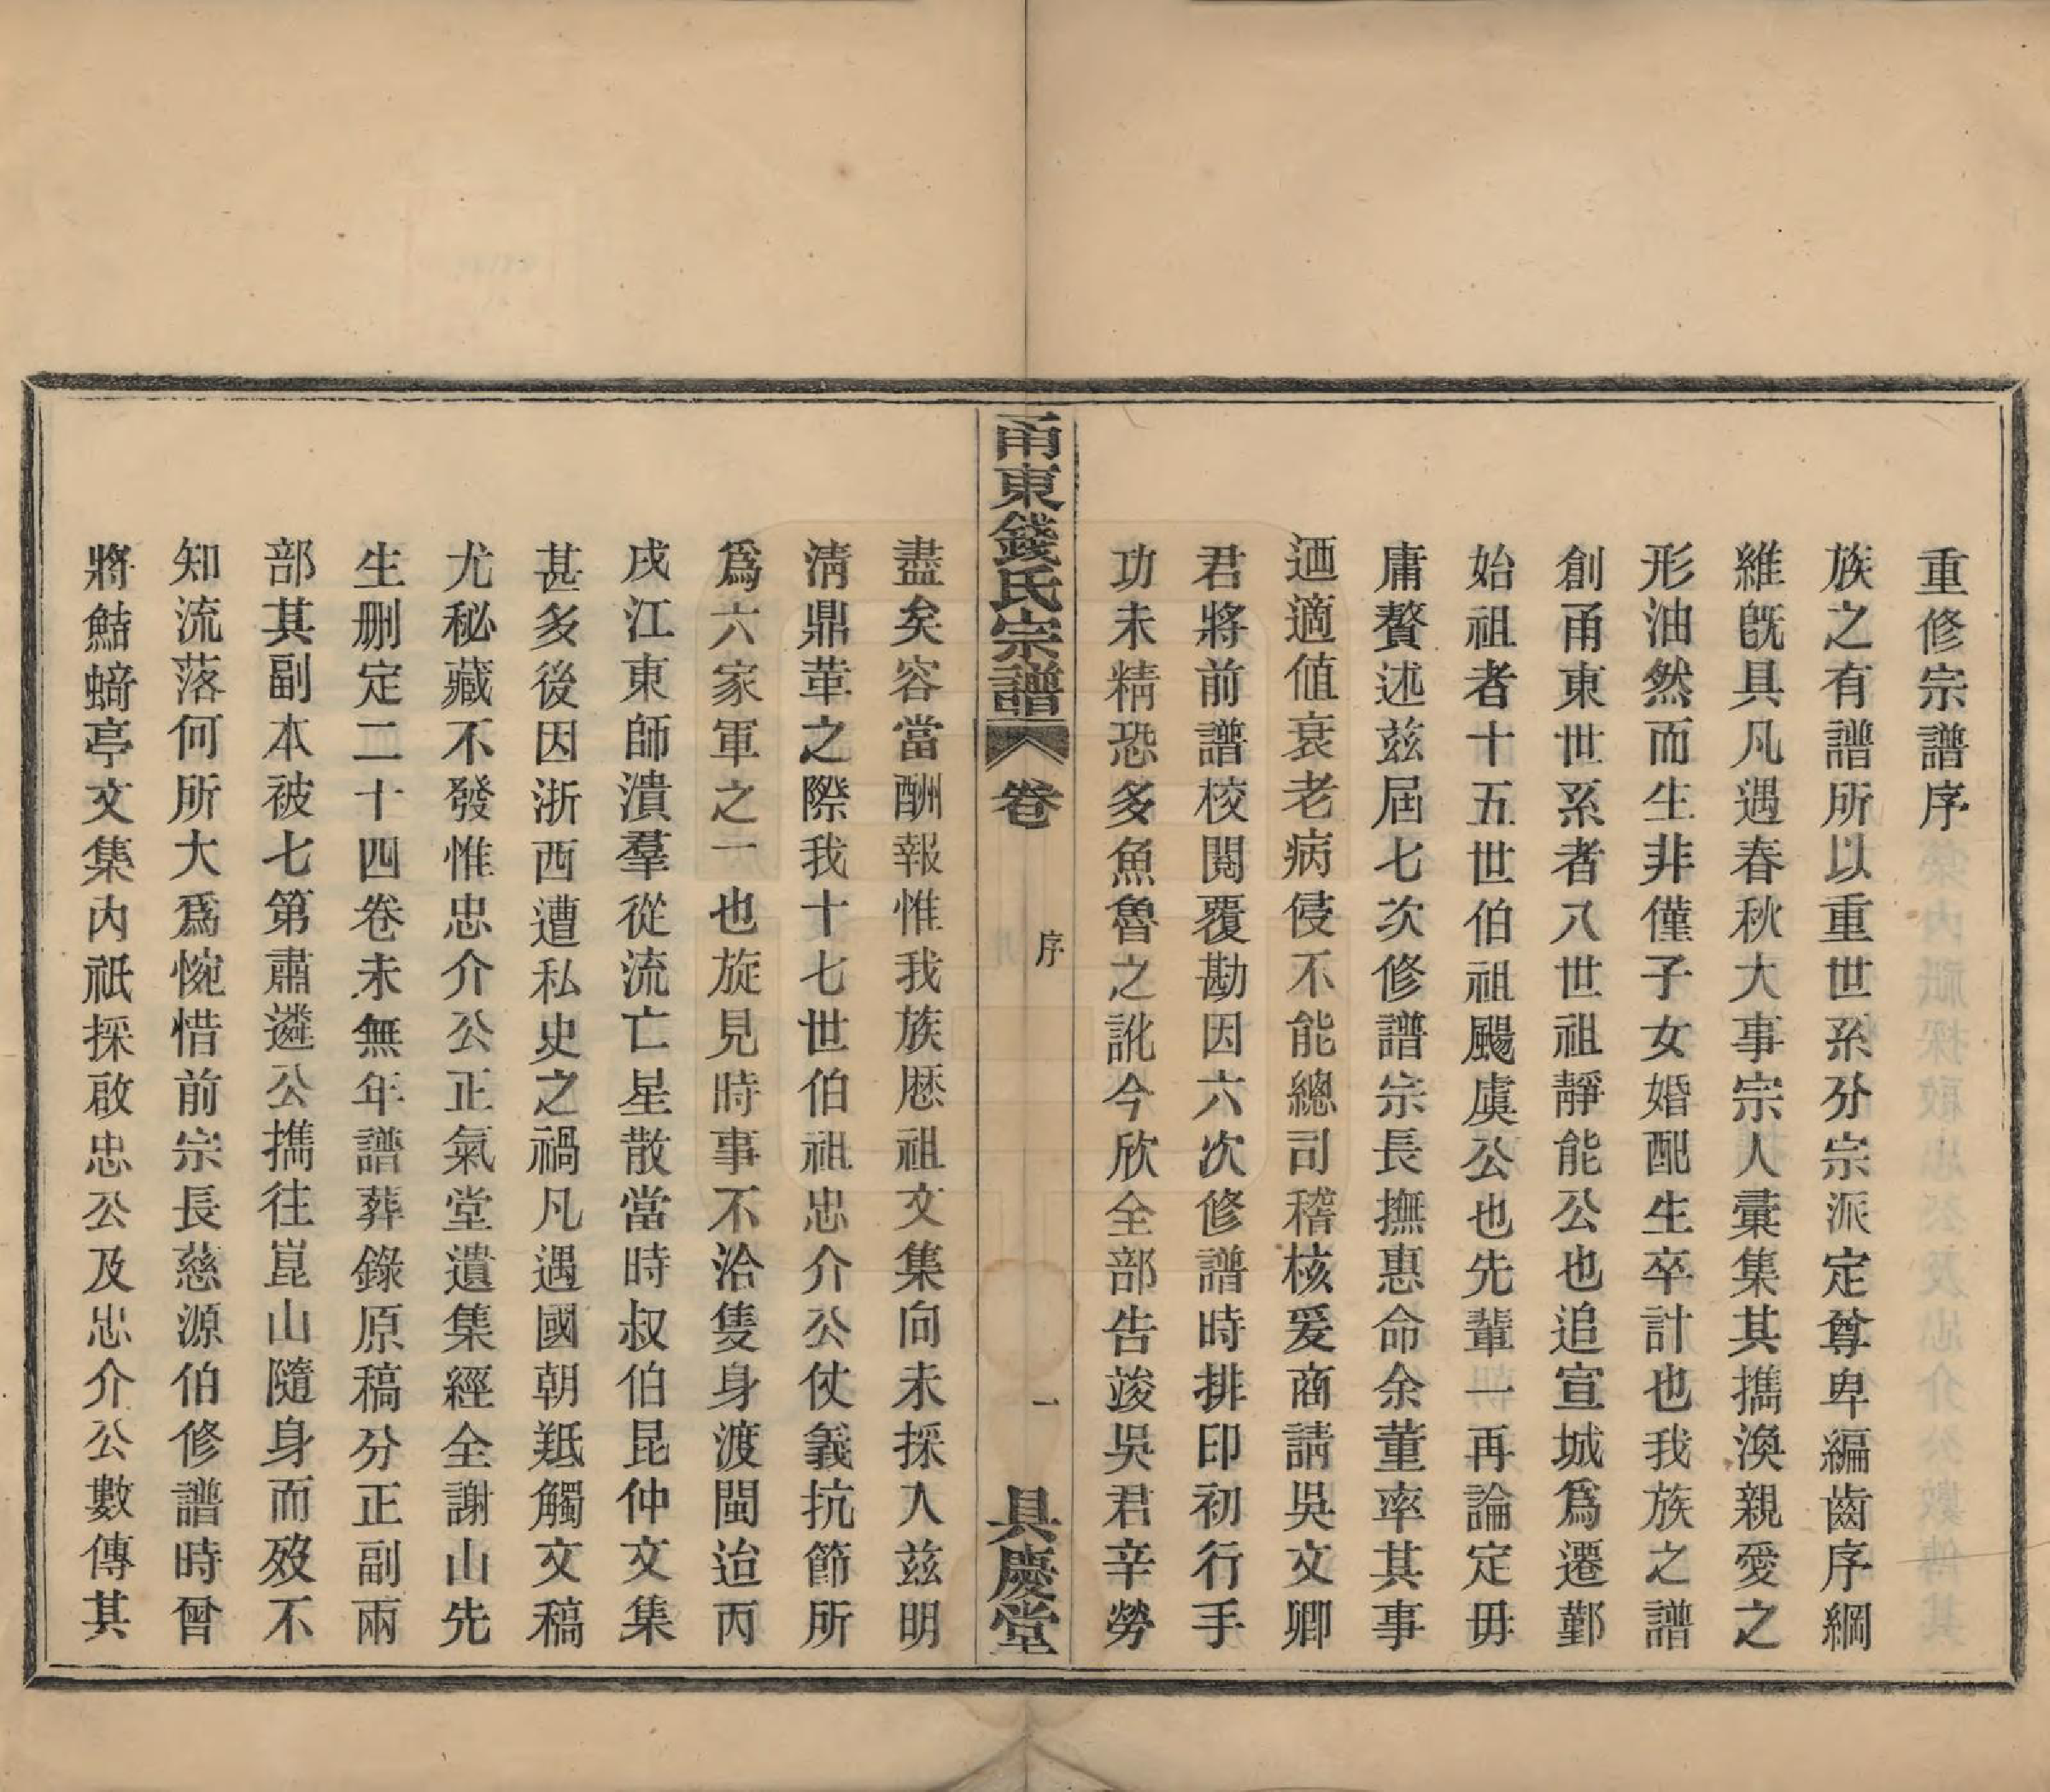 重修宗譜序
族之有譜所以重世系分宗派定尊卑編齒序綱
維旣具凡遇春秋大事宗人彙集其擕渙親愛之
形油然而生非僅子女婚配生卒計也我族之譜
創甬東世系者八世祖靜能公也追宣城爲遷鄞
始祖者十五世伯祖颺虞公也先輩一再論定毋
庸贅述兹屆七次修譜宗長撫惠命余董率其事
迺適値衰老病侵不能總司稽核爰商請吳文卿
君將前譜校閱覆勘因六次修譜時排印初行手
功未精恐多魚魯之訛今欣全部告竣吳君辛勞
甬東錢氏宗譜
卷
序
一
具慶堂
盡矣容當酬報惟我族歷祖文集向未採入兹明
淸鼎革之際我十七世伯祖忠介公仗義抗節所
爲六家軍之一也旋見時事不洽隻身渡閩迨丙
戌江東師潰羣從流亡星散當時叔伯昆仲文集
甚多後因浙西遭私史之禍凡遇國朝羝觸文稿
尤秘藏不發惟忠介公正氣堂遺集經全謝山先
生刪定二十四卷未無年譜葬錄原稿分正副兩
部其副本被七第肅遴公擕往崑山隨身而歿不
知流落何所大爲惋惜前宗長慈源伯修譜時曾
將鮚蝟亭文集內祇採啟忠公及忠介公數傳其